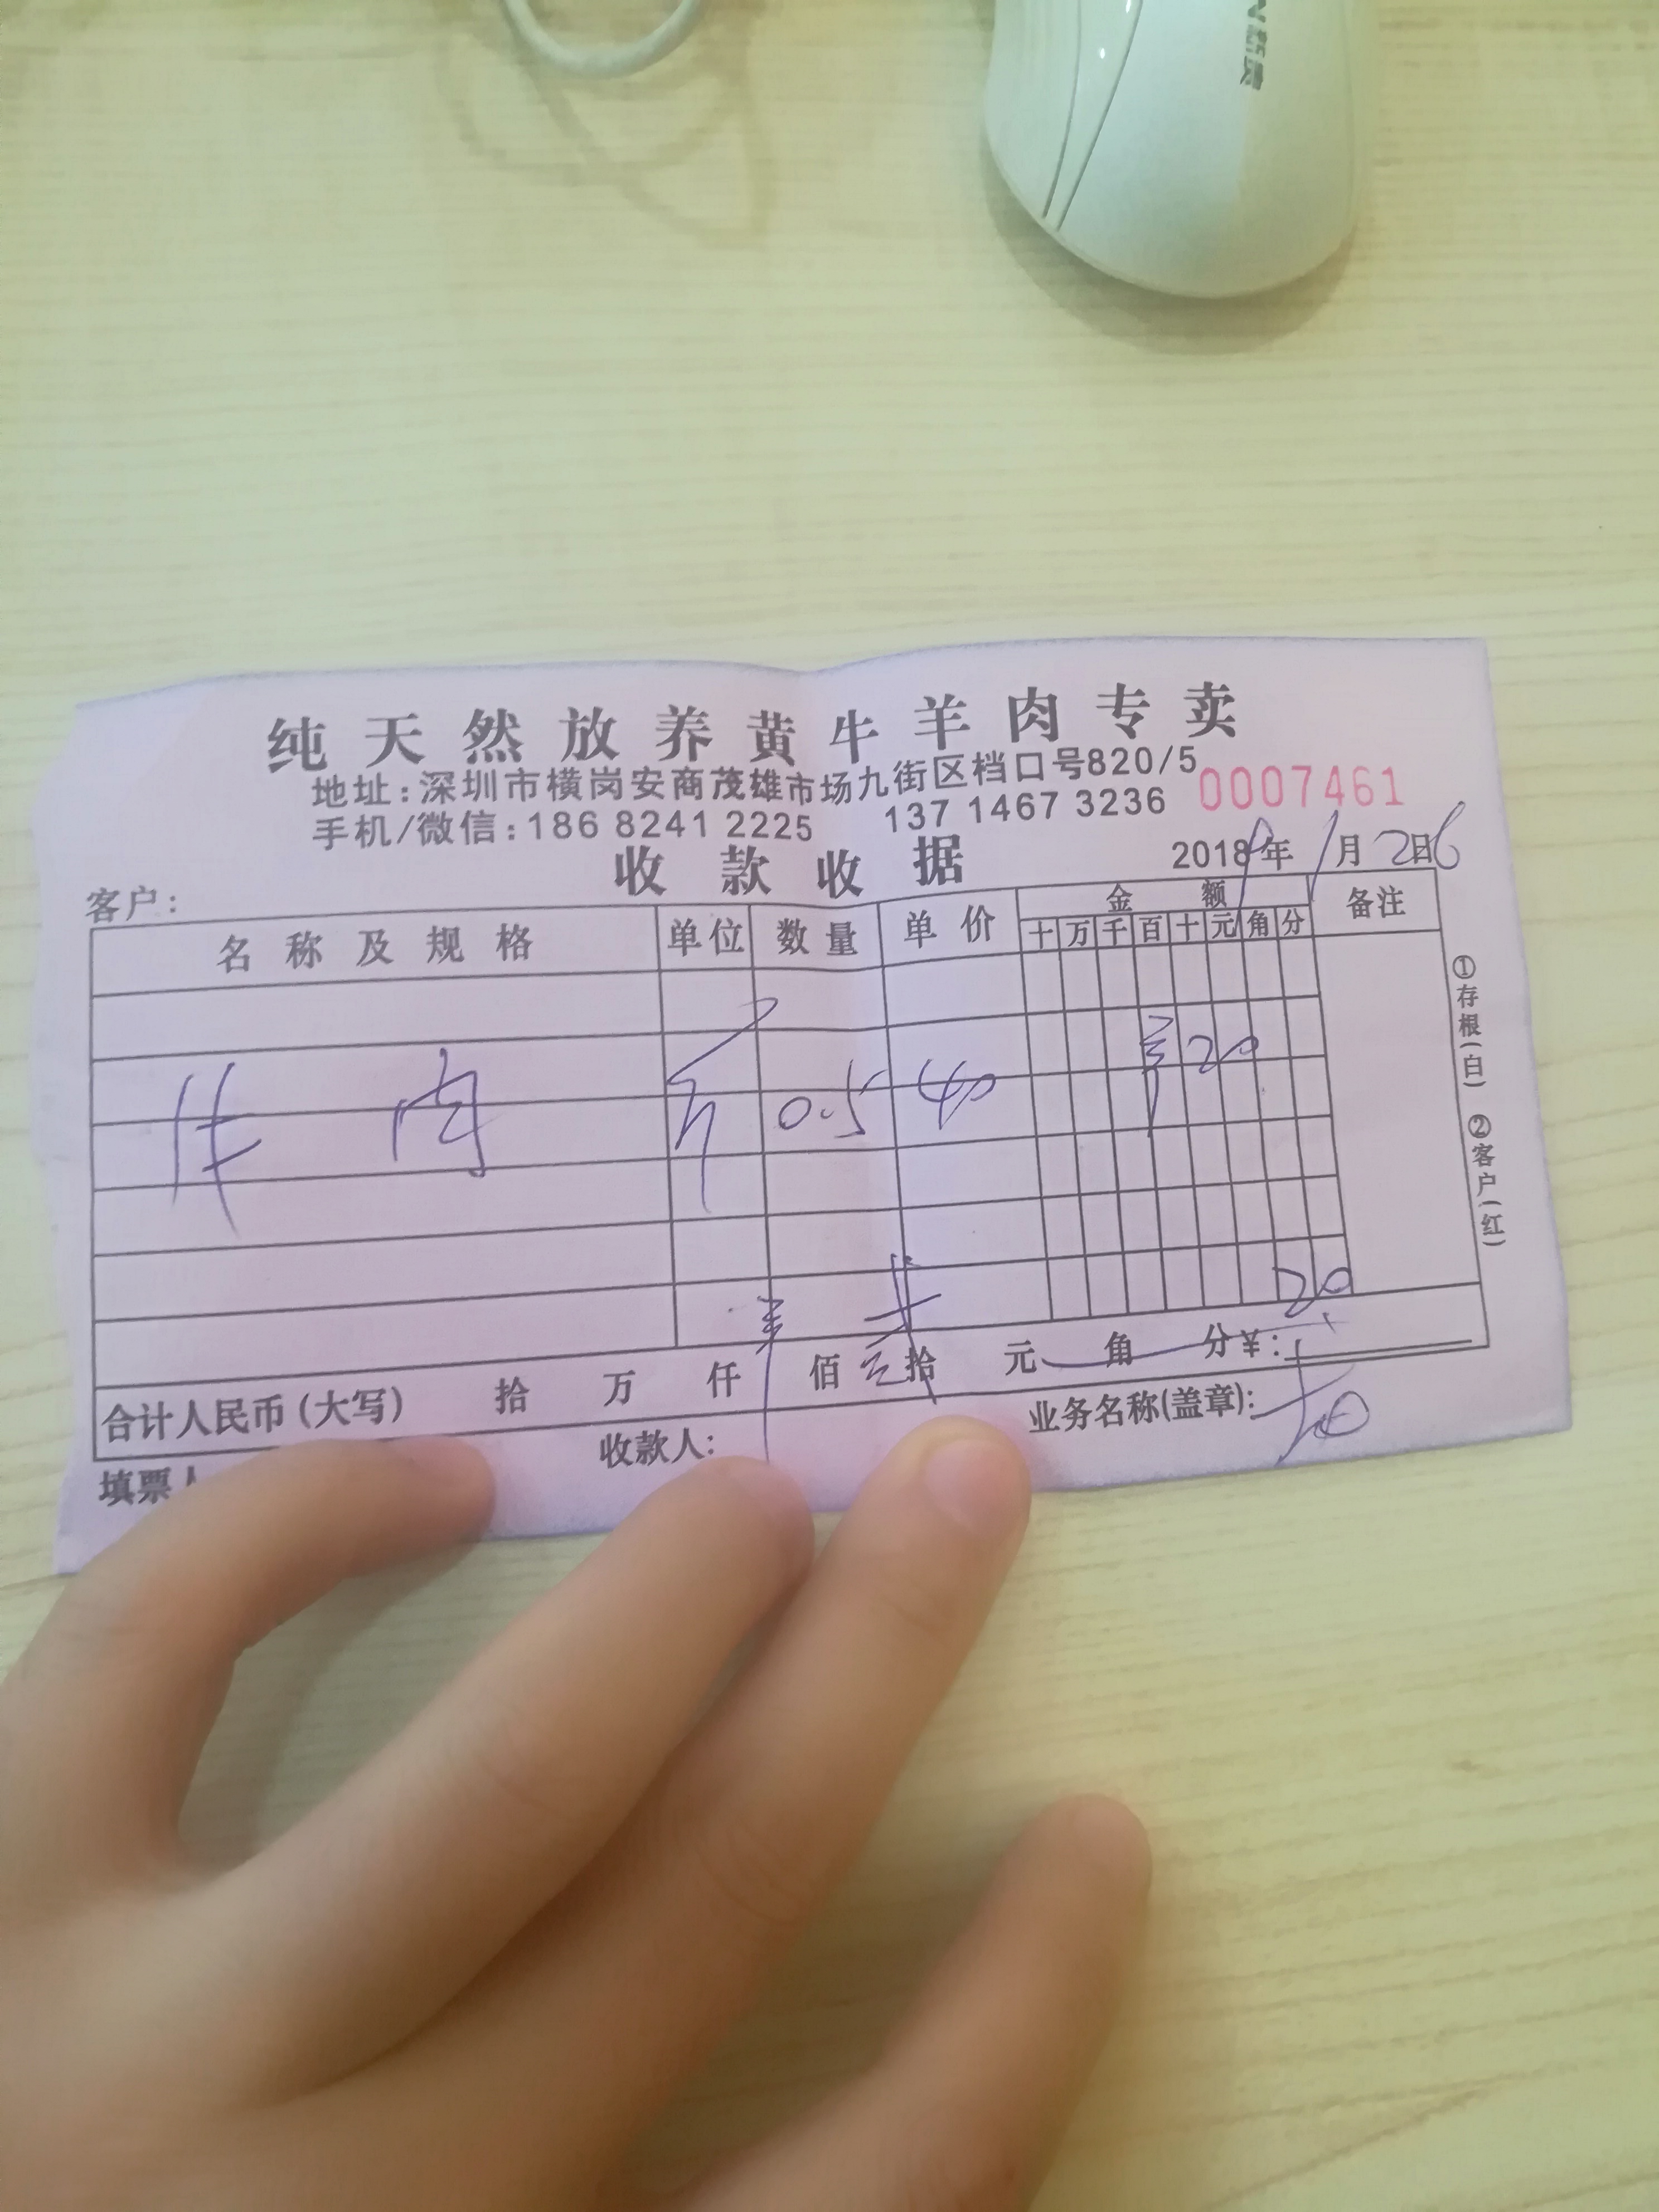 新贵
纯天然放养黄牛羊肉专卖
地址:深圳市横岗安商茂雄市场九街区档口号820/5
手机/微信:186 8241 2225 137 1467 3236 0007461
收款收据
2018年1月26日
客户:
名称及规格 单位 数量 单价 金额 备注
十 万 千 百 十 元 角 分
肉 斤 0.5 40 ¥ 20
20
合计人民币(大写) 拾 万 仟 佰 拾 元 角 分 ¥:
填票人 收款人: 业务名称(盖章):
①存根(白) ②客户(红)